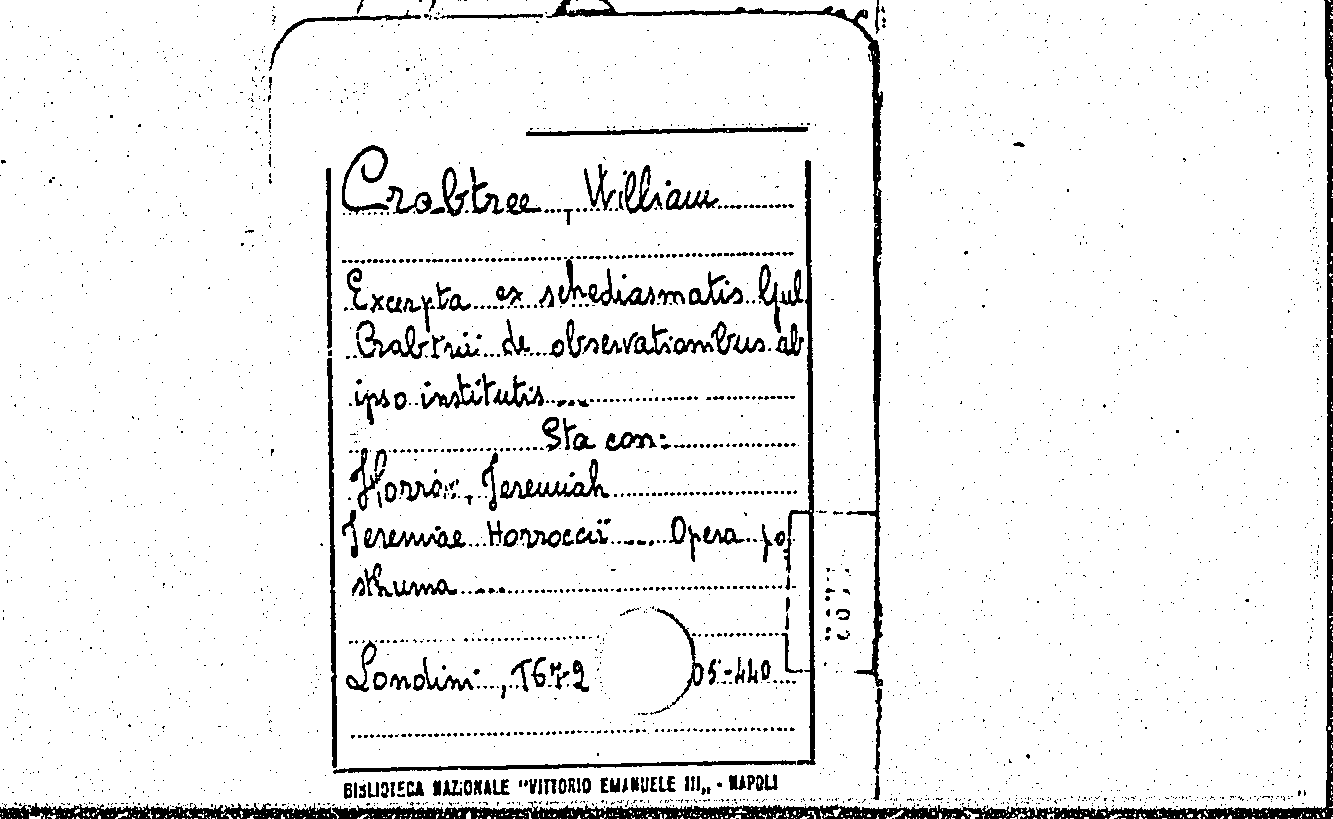 Crabtree, William
Excerpta ex schediasmatis Gul.
Crabtrii de observationibus ab
ipso institutis ...
Sta con:
Horrox, Jeremiah
Jeremiae Horroccii .... Opera po
sthuma ....
Londini, 1672 05-440
BIBLIOTECA NAZIONALE "VITTORIO EMANUELE III„ - NAPOLI